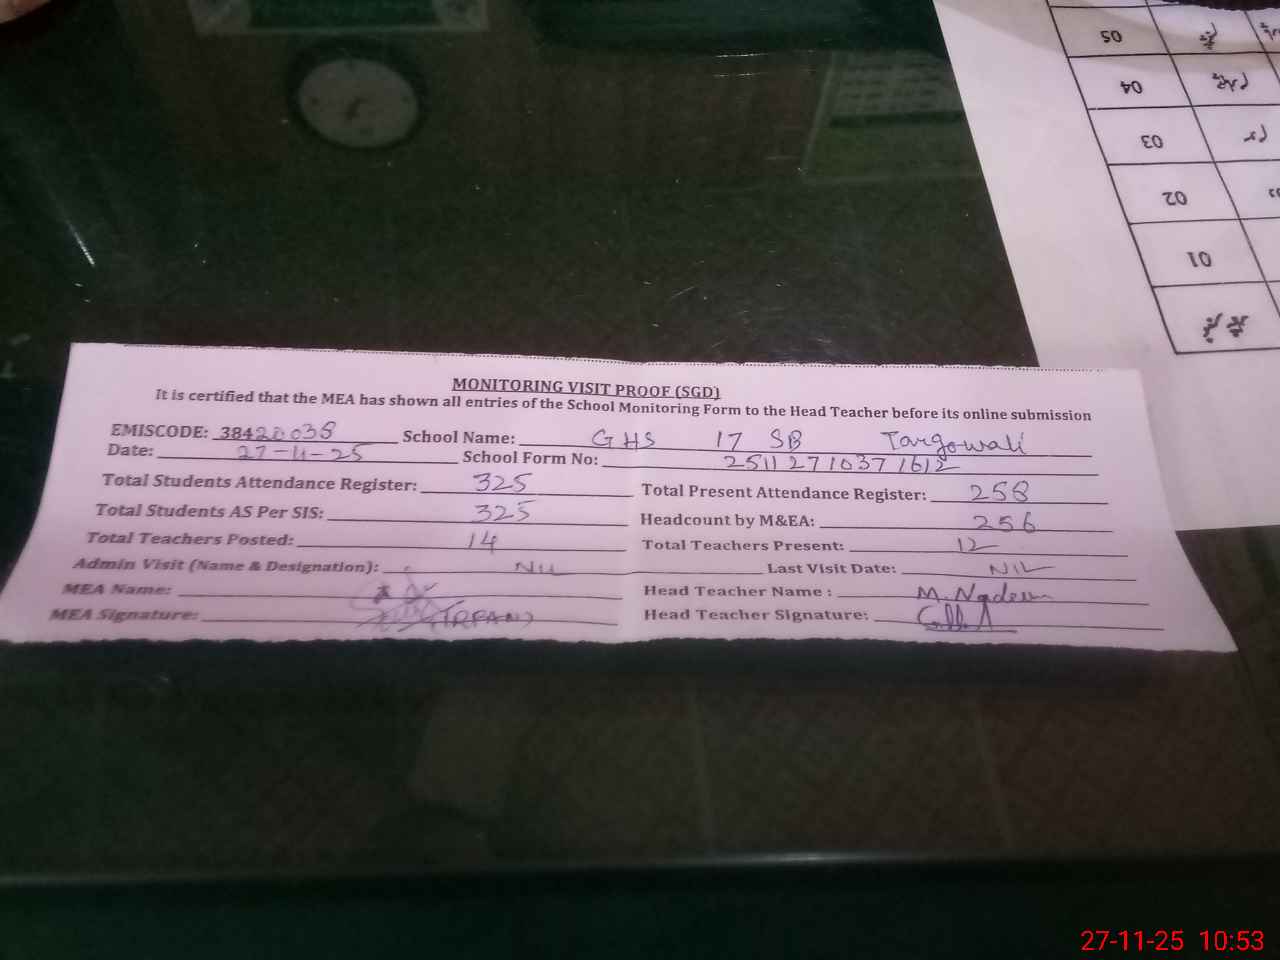 MONITORING VISIT PROOF (SGD)
It is certified that the MEA has shown all entries of the School Monitoring Form to the Head Teacher before its online submission
EMISCODE: 38420038 School Name: GHS 17 SB Targowali
Date: 27-11-25 School Form No: 25112710371612
Total Students Attendance Register: 325 Total Present Attendance Register: 258
Total Students AS Per SIS: 325 Headcount by M&EA: 256
Total Teachers Posted: 14 Total Teachers Present: 12
Admin Visit (Name & Designation): NIL Last Visit Date: NIL
MEA Name: Head Teacher Name : M. Nadeem
MEA Signature: (IRFAN) Head Teacher Signature:
05
04
03
02
01
27-11-25 10:53